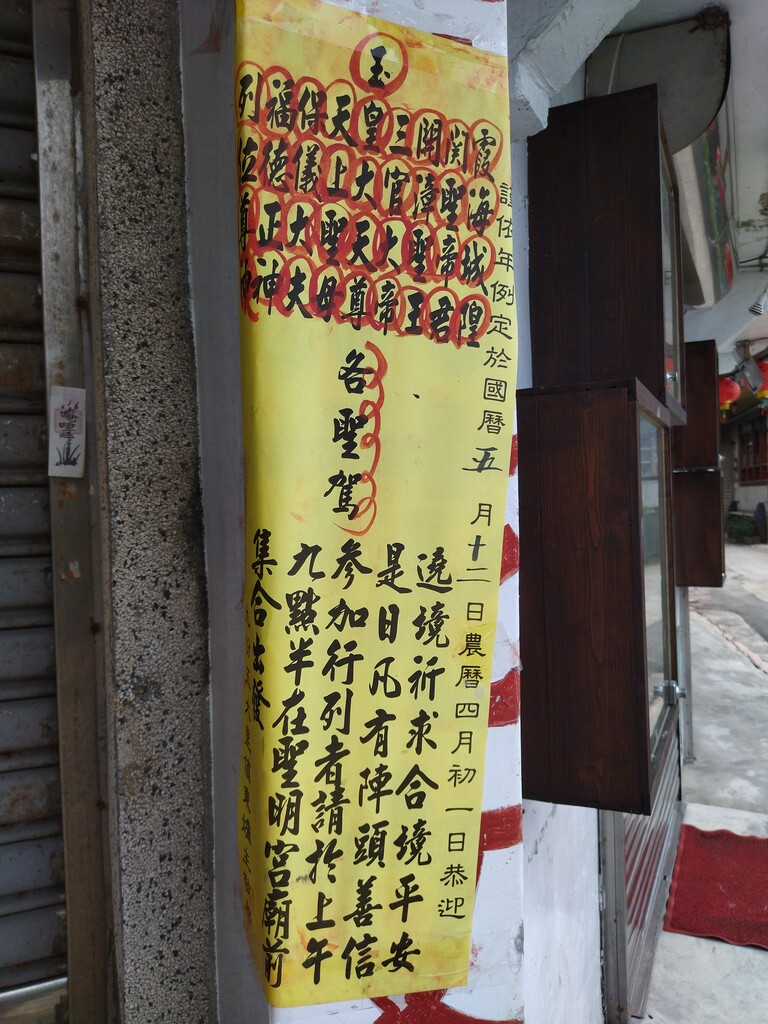 謹依年例定於國曆五月十二日農曆四月初一日恭迎
霞海城隍
関聖帝君
開漳聖王
三官大帝
玉皇大天尊
天上聖母
保儀大夫
福德正神
列位尊神
各聖駕
遶境祈求合境平安
是日凡有陣頭善信
參加行列者請於上午
九點半在聖明宮廟前
集合出發